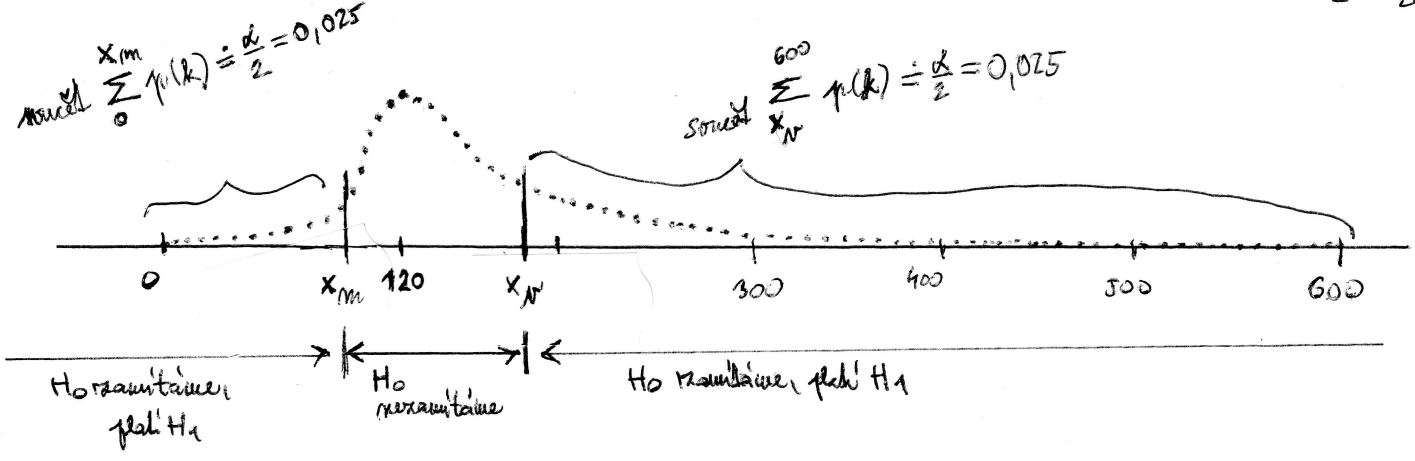 součet \sum_{0}^{x_m} p(k) ≐ α/2 = 0,025
součet \sum_{x_v}^{600} p(k) ≐ α/2 = 0,025
0 x_m 120 x_v 300 400 500 600
H0 zamítáme, platí H1
H0 nezamítáme
H0 zamítáme, platí H1